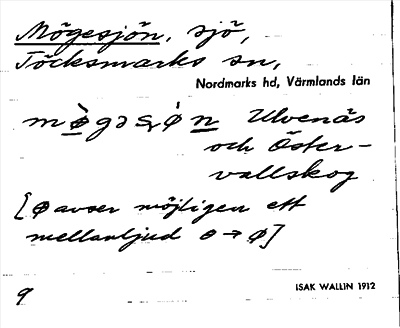 Mögesjön, sjö,
Töcksmarks sn,
Nordmarks hd, Värmlands län
mø̀gəsɷ́øn Ulvenäs
och Öster-
vallskog
[ø avser möjligen ett
mellanljud ɵ → ø]
ISAK WALLIN 1912
9